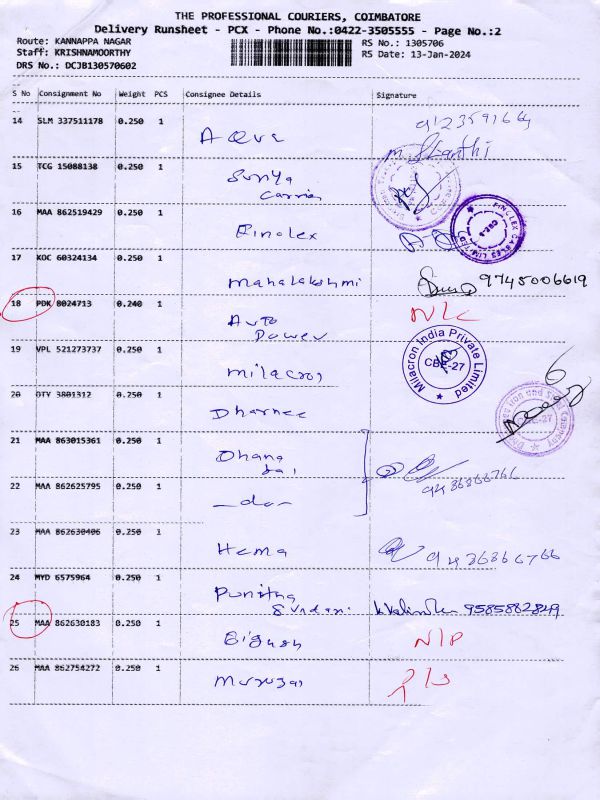 THE PROFESSIONAL COURIERS, COIMBATORE
Delivery Runsheet - PCX - Phone No.:0422-3505555 - Page No.:2
Route: KANNAPPA NAGAR
Staff: KRISHNAMOORTHY
DRS No.: DCJB130570602
RS No.: 1305706
RS Date: 13-Jan-2024
S No Consignment No Weight PCS Consignee Details Signature
14 SLM 337511178 0.250 1
912359166
m. Shanthi
15 TCG 15088138 0.250 1 Surya
Carrier
16 MAA 862519429 0.250 1 Finolex
FINOLEX CABLES LIMITED
17 KOC 60324134 0.250 1 Mahalakshmi 9745006619
18 PDK 8024713 0.240 1 Auto
Power N/C
19 VPL 521273737 0.250 1 Milacron
Milacron India Private Limited
CBE-27
20 DTY 3801312 0.250 1 Dharnee
21 MAA 863015361 0.250 1 Dhana
22 MAA 862625795 0.250 1 -do-
23 MAA 862630406 0.250 1 Hema
24 MYD 6575964 0.250 1 Punitha
Sundari 9585882849
25 MAA 862630183 0.250 1 N/P
26 MAA 862754272 0.250 1 Murugan